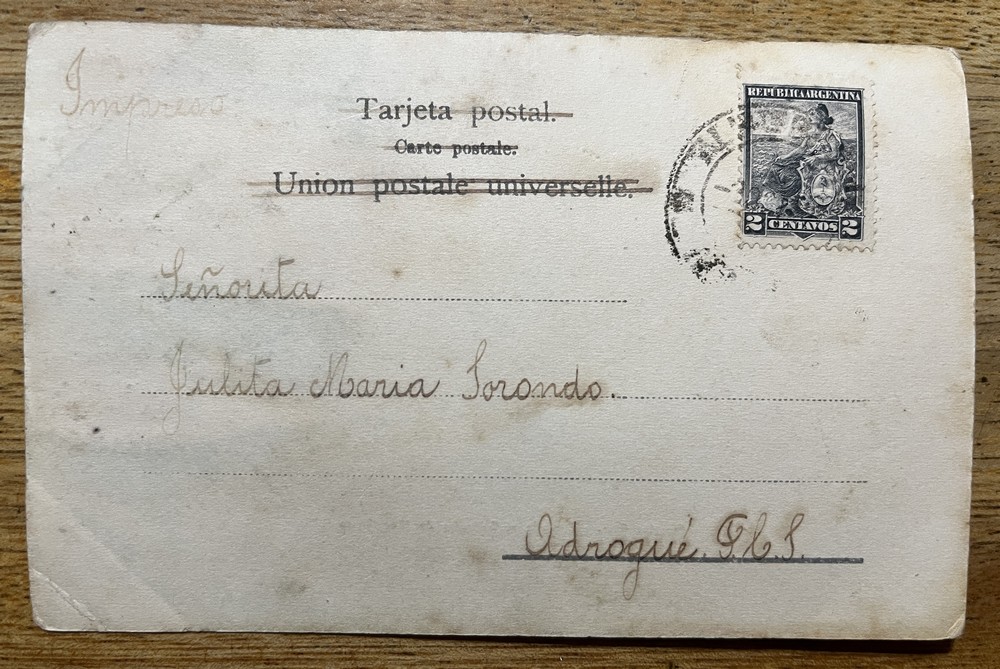 Impreso
Tarjeta postal.
Carte postale.
Union postale universelle.
REPUBLICA ARGENTINA
2 CENTAVOS 2
Señorita
Julita Maria Sorondo.
Adrogué. F.C.S.